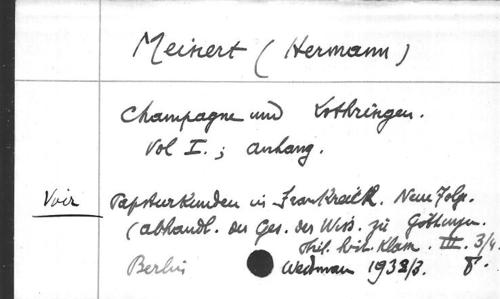 Meinert (Hermann)
Champagne und Lothringen.
Vol I. ; anhang.
Voir Papsturkunden in Frankreich. Neue Folge.
(abhandl. der Ges. der Wiss. zu Göttingen.
Phil. hist. Klasse. III. 3/4.
Berlin Weidmann 1932/3. 8°.